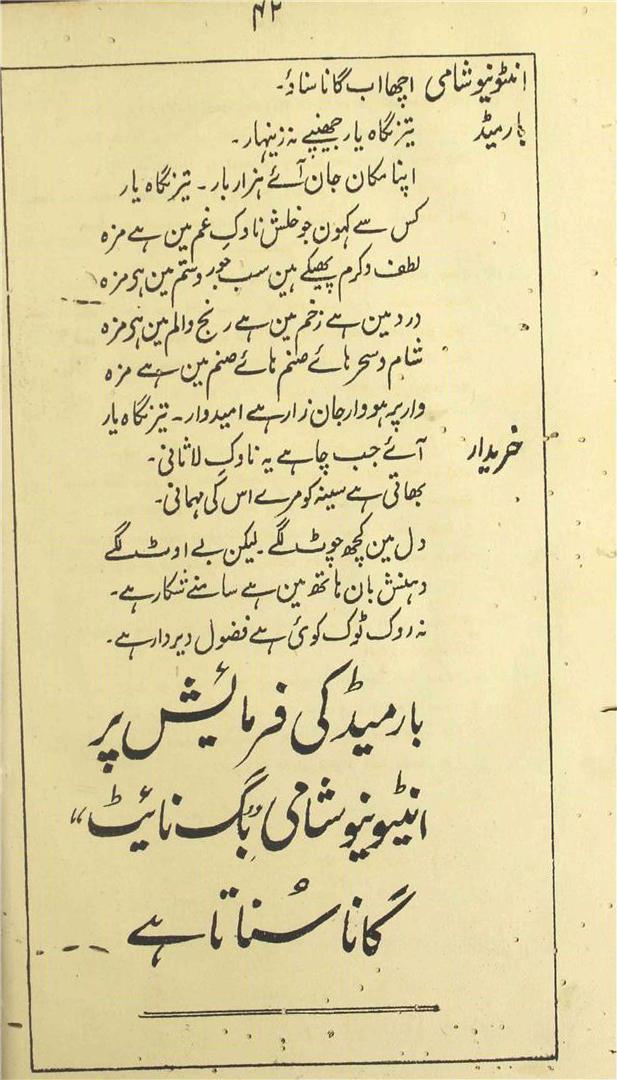 ۴۲
انٹونیوشامی اچھا اب گانا سناؤ۔
بارمیڈ تیز نگاہ یار جھنپے نہ زینہار۔
اپنا مکان جان آئے ہزار بار۔ تیز نگاہ یار
کس سے کہون جو خلش ناوکِ غم مین ہے مزہ
لطف و کرم پھیکے ہین سب جور و ستم مین ہی مزہ
درد مین ہے زخم مین ہے رنج والم مین ہی مزہ
شام و سحر ہائے صنم ہائے صنم مین ہے مزہ
وار پہ ہو وار جان زار ہے امیدوار۔ تیز نگاہ یار
خریدار آئے جب چاہے یہ ناوکِ لاثانی۔
بھاتی ہے سینہ کو مرے اس کی مہمانی۔
دل مین کچھ چوٹ لگے۔ لیکن بے اوٹ لگے
دہنش بان ہاتھ مین ہے سامنے شکار ہے۔
نہ روک ٹوک کوئی ہے فضول دیر دار ہے۔
بارمیڈ کی فرمائیش پر
انٹیونیوشامی "بُگ نائیٹ"
گانا سُناتا ہے